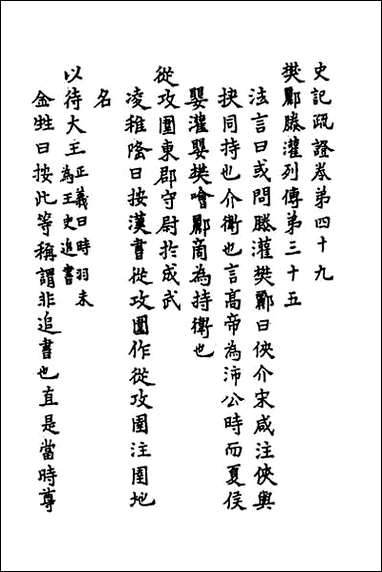 史記疏證卷第四十九
樊酈滕灌列傳第三十五
法言曰或問滕灌樊酈曰俠介宋咸注俠與
抉同持也介衛也言高帝為沛公時而夏侯
嬰灌嬰樊噲酈商為持衛也
從攻圍東郡守尉扵成武
凌稚隆曰按漢書從攻圉作從攻圉注圉地
名
以待大王正義曰時羽未為王史追書
金甡曰按此等稱謂非追書也直是當時尊